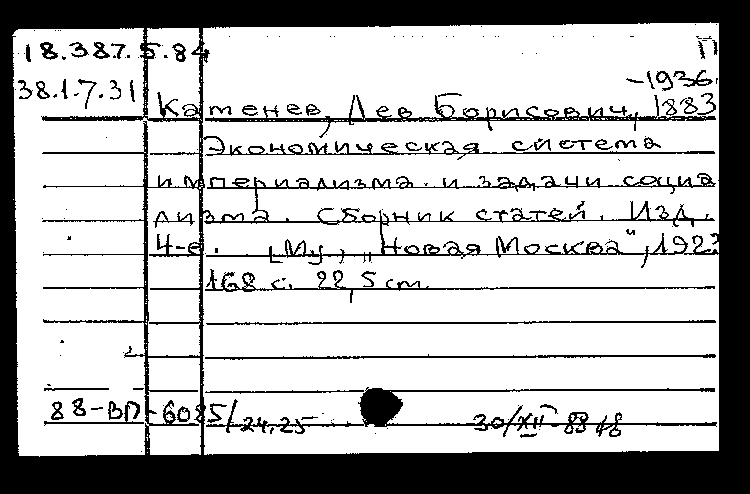 18.387.5.84 П
38.1.7.31 -1936.
Каменев, Лев Борисович, 1883
Экономическая система
империализма и задачи социа
лизма. Сборник статей. Изд.
4-е. [М], „Новая Москва", 192
168 с. 22,5 cm.
88-ВП-6085/24.25 30/XII-88